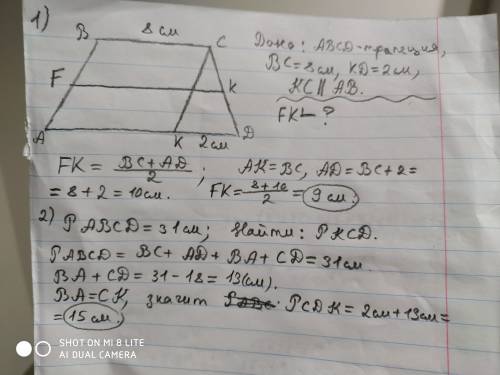 1)
B 8 см C
F K
A K 2 см D
Дано: ABCD - трапеция,
BC = 8 см, KD = 2 см,
KC || AB.
FK - ?
FK = BC + AD / 2 ; AK = BC, AD = BC + 2 =
= 8 + 2 = 10 см. FK = 8 + 10 / 2 = 9 см.
2) P ABCD = 31 см; Найти: P KCD.
P ABCD = BC + AD + BA + CD = 31 см
BA + CD = 31 - 18 = 13 (см).
BA = CK, значит P CDK = 2 см + 13 см =
= 15 см.
SHOT ON MI 8 LITE
AI DUAL CAMERA